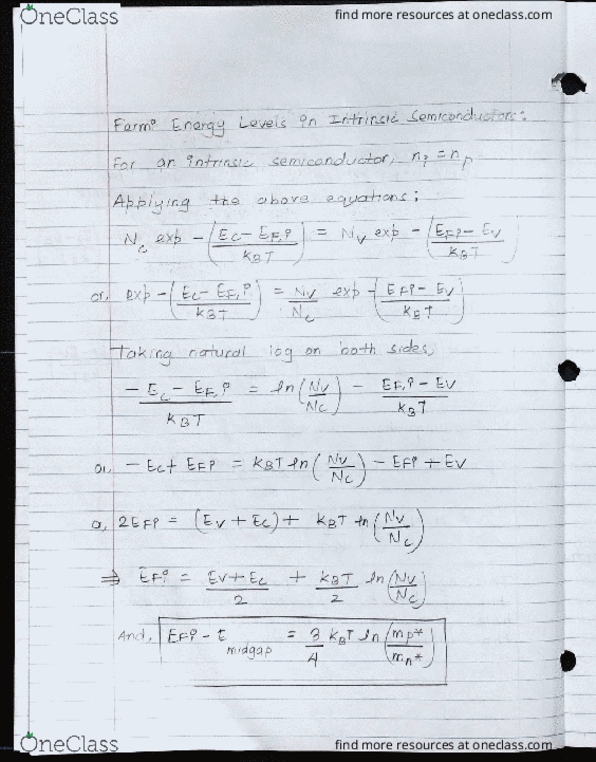 OneClass
find more resources at oneclass.com
Fermi Energy Levels in Intrinsic Semiconductors:
For an intrinsic semiconductor, ni = np
Applying the above equations;
Nc exp - (Ec - EF,i / kBT) = Nv exp - (EFi - Ev / kBT)
or, exp - (Ec - EF,i / kBT) = Nv/Nc exp - (EFi - Ev / kBT)
Taking natural log on both sides,
- Ec - EF,i / kBT = ln (Nv/Nc) - EF,i - Ev / kBT
or, - Ec + EFi = kBT ln (Nv/Nc) - EFi + Ev
or, 2EFi = (Ev + Ec) + kBT ln (Nv/Nc)
⇒ EFi = Ev + Ec / 2 + kBT / 2 ln (Nv/Nc)
And, EFi - E midgap = 3/4 kBT ln (mp*/mn*)
OneClass
find more resources at oneclass.com